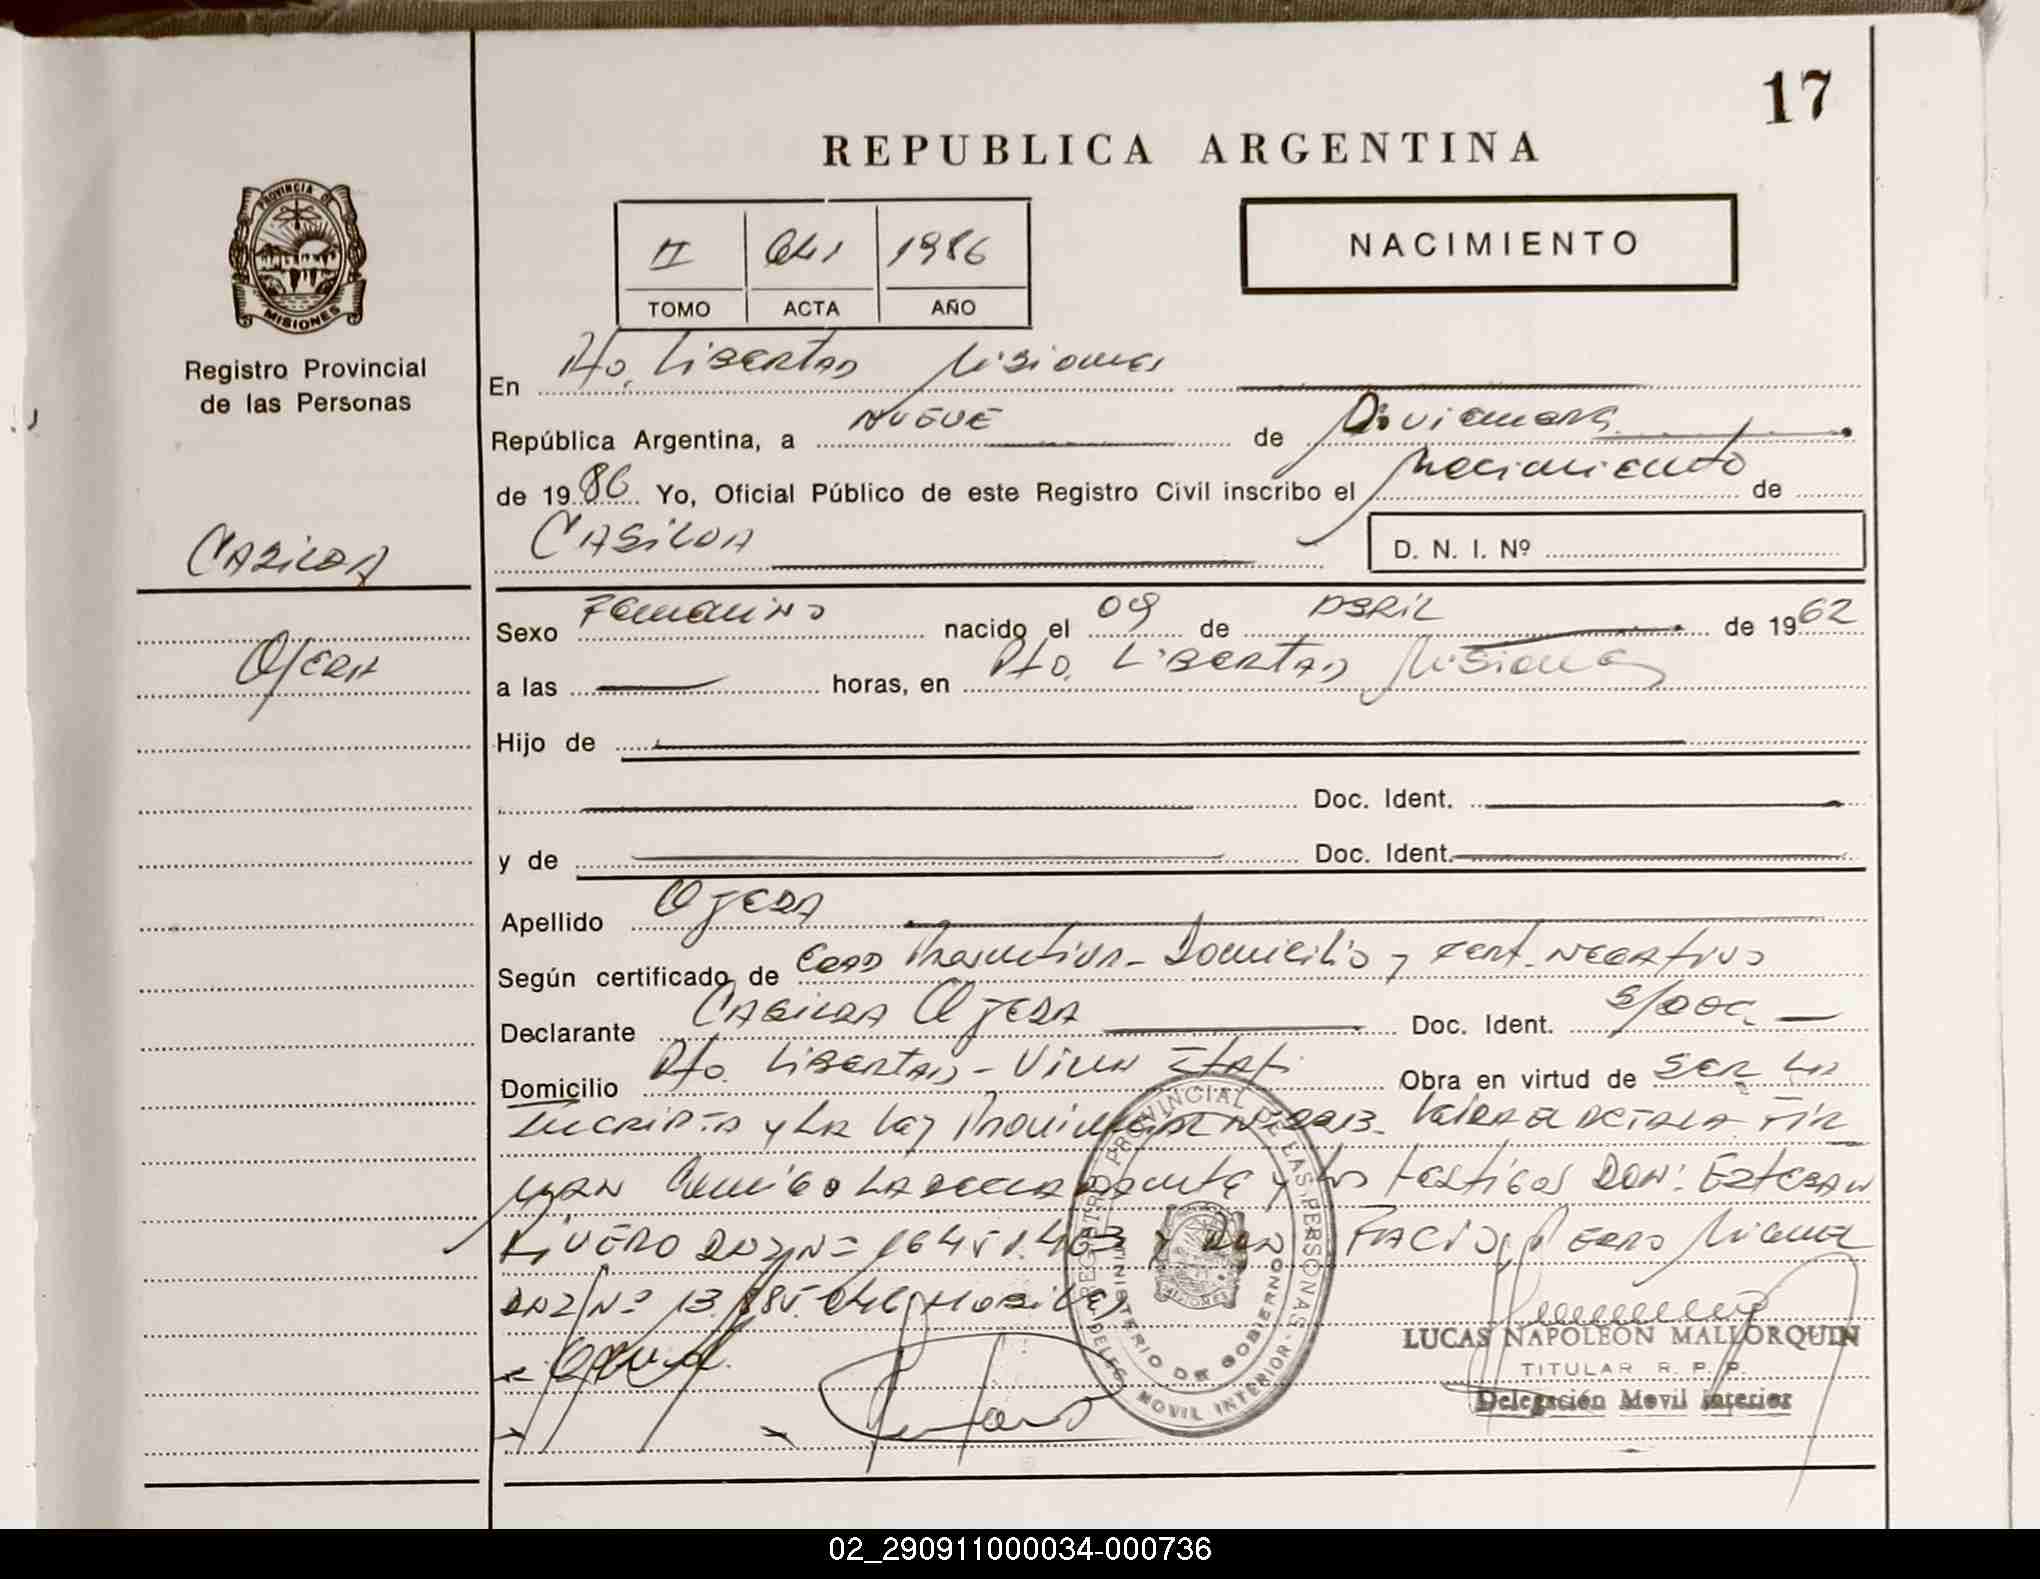 17
REPUBLICA ARGENTINA
PROVINCIA DE
MISIONES
Registro Provincial
de las Personas
II 041 1986
TOMO ACTA AÑO
NACIMIENTO
En Pto. Libertad Misiones
República Argentina, a NUEVE de Diciembre
de 1986 Yo, Oficial Público de este Registro Civil inscribo el Nacimiento de
CASILDA
D. N. I. Nº
CASILDA
OJEDA
Sexo Femenino nacido el 09 de ABRIL de 1962
a las horas, en Pto. LIBERTAD Misiones
Hijo de
Doc. Ident.
y de Doc. Ident.
Apellido OJEDA
Según certificado de EDAD Presuntiva - Domicilio y Cert. NEGATIVO
Declarante CASILDA OJEDA Doc. Ident. S/DOC.
Domicilio Pto. LIBERTAD - VILLA Obra en virtud de SER LA
INSCRIPTA y LA Ley Provincial
MAN Conmigo LA DECLARANTE y LOS Testigos DON: ESTEBAN
RIVERO DNI Nº 16451.463 y DON Pedro Miguel
DNI Nº 13.
REGISTRO PROVINCIAL DE LAS PERSONAS - DELEG. MOVIL INTERIOR -
MINISTERIO DE GOBIERNO
MISIONES
LUCAS NAPOLEON MALLORQUIN
TITULAR R. P. P.
Delegación Movil interior
02_290911000034-000736